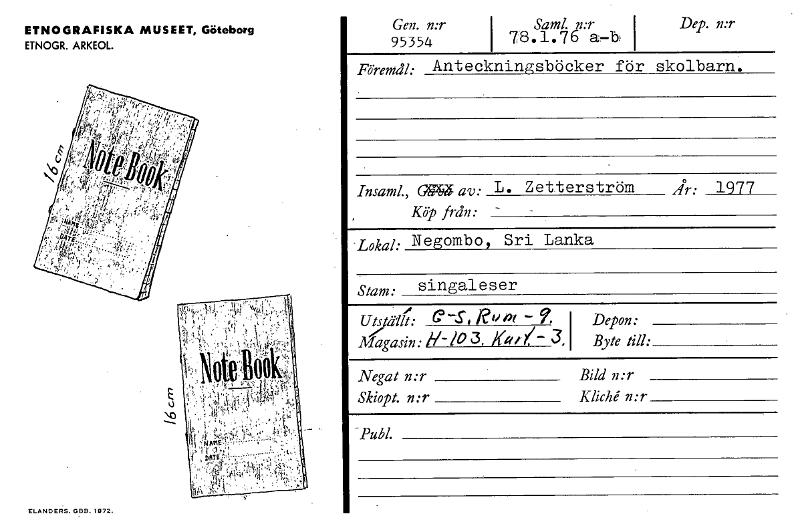 ETNOGRAFISKA MUSEET, Göteborg
ETNOGR. ARKEOL.
16 cm
Note Book
NAME
DATE
16 cm
Note Book
NAME
DATE
ELANDERS. GBD. 1972.
Gen. n:r Saml. n:r Dep. n:r
95354 78.1.76 a-b
Föremål: Anteckningsböcker för skolbarn.
Insaml., av: L. Zetterström År: 1977
Köp från: -
Lokal: Negombo, Sri Lanka
Stam: singaleser
Utställt: G-S, Rum - 9. Depon:
Magasin: H-103. Kart. - 3. Byte till:
Negat n:r Bild n:r
Skiopt. n:r Kliché n:r
Publ.